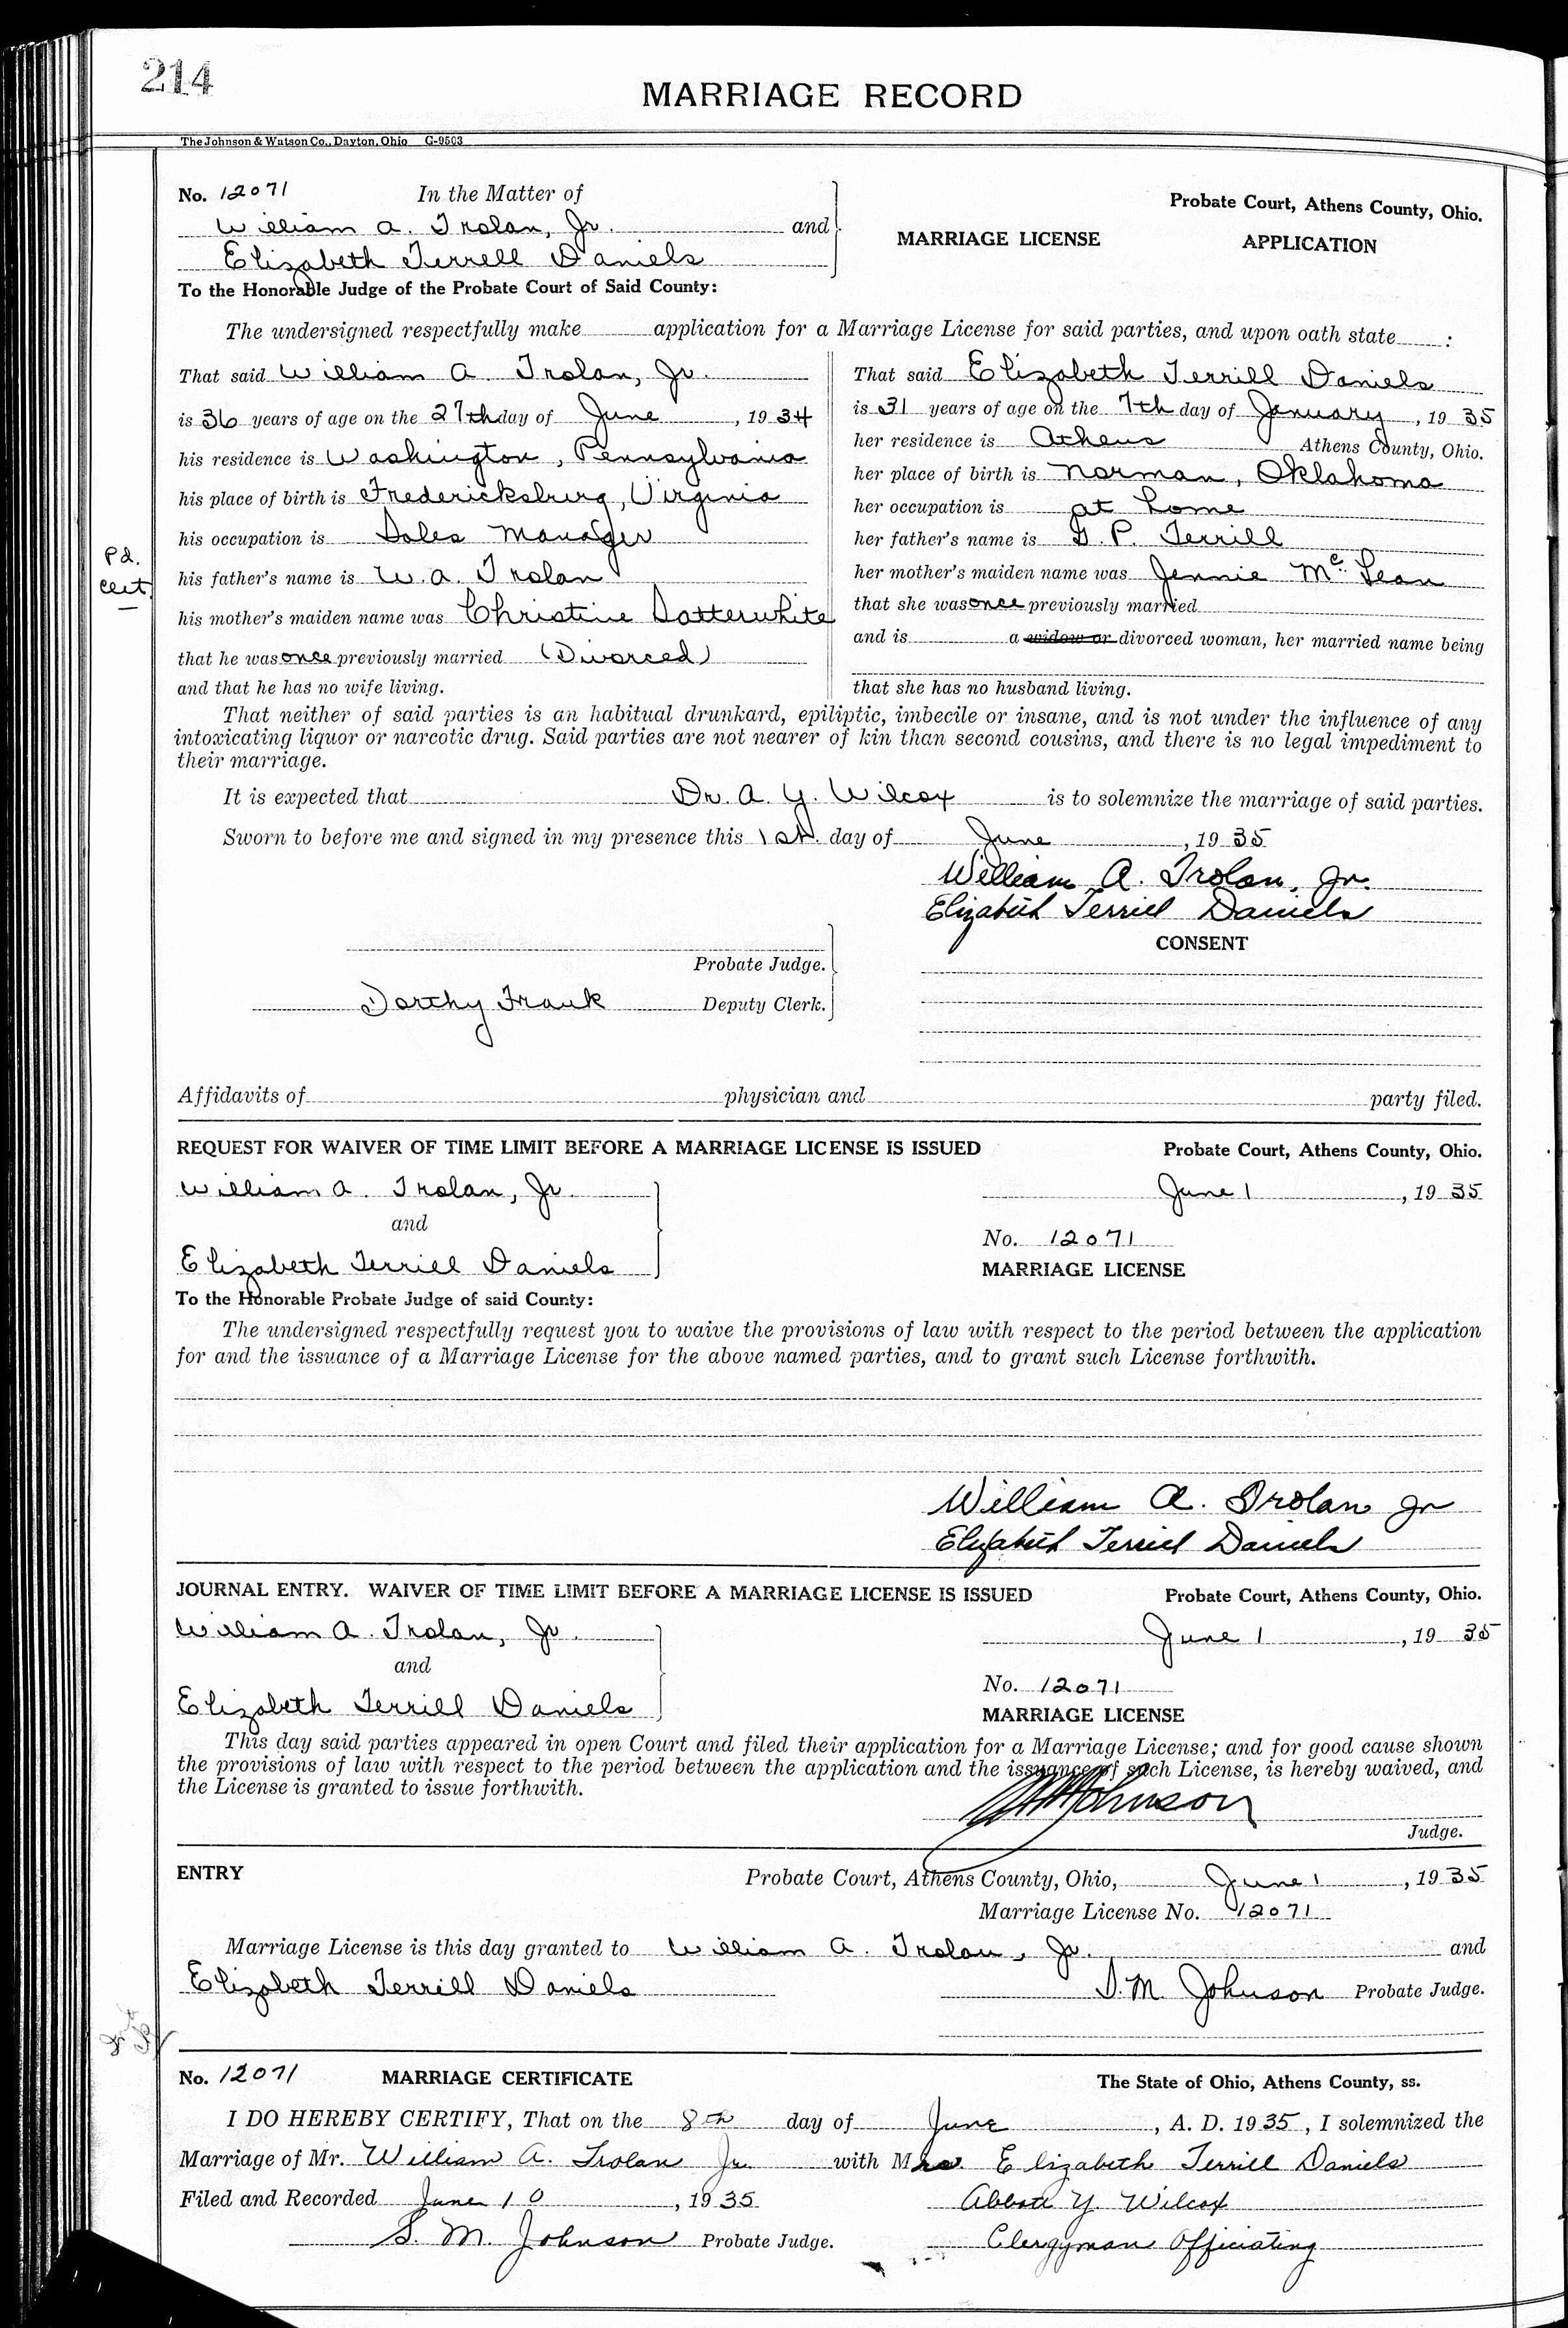 214
MARRIAGE RECORD
The Johnson & Watson Co., Dayton, Ohio G-9503
No. 12071 In the Matter of
William A. Trolan, Jr. and
Elizabeth Terrell Daniels
Probate Court, Athens County, Ohio.
MARRIAGE LICENSE APPLICATION
To the Honorable Judge of the Probate Court of Said County:
The undersigned respectfully make application for a Marriage License for said parties, and upon oath state :
That said William A. Trolan, Jr.
is 36 years of age on the 27th day of June, 1934
his residence is Washington, Pennsylvania
his place of birth is Fredericksburg, Virginia
his occupation is Sales Manager
his father's name is W. A. Trolan
his mother's maiden name was Christine Satterwhite
that he was once previously married (Divorced)
and that he has no wife living.
Pd.
Cert.
That said Elizabeth Terrill Daniels
is 31 years of age on the 7th day of January, 1935
her residence is Athens Athens County, Ohio.
her place of birth is Norman, Oklahoma
her occupation is at home
her father's name is G. P. Terrill
her mother's maiden name was Jennie McLean
that she was once previously married
and is a widow or divorced woman, her married name being
that she has no husband living.
That neither of said parties is an habitual drunkard, epiliptic, imbecile or insane, and is not under the influence of any
intoxicating liquor or narcotic drug. Said parties are not nearer of kin than second cousins, and there is no legal impediment to
their marriage.
It is expected that Dr. A. Y. Wilcox is to solemnize the marriage of said parties.
Sworn to before me and signed in my presence this 1st. day of June, 1935
William A. Trolan, Jr.
Elizabeth Terrill Daniels
CONSENT
Probate Judge.
Dorthy Frank Deputy Clerk.
Affidavits of physician and party filed.
REQUEST FOR WAIVER OF TIME LIMIT BEFORE A MARRIAGE LICENSE IS ISSUED Probate Court, Athens County, Ohio.
William A. Trolan, Jr. June 1, 1935
and
No. 12071
Elizabeth Terrill Daniels
MARRIAGE LICENSE
To the Honorable Probate Judge of said County:
The undersigned respectfully request you to waive the provisions of law with respect to the period between the application
for and the issuance of a Marriage License for the above named parties, and to grant such License forthwith.
William A. Trolan Jr
Elizabeth Terrill Daniels
JOURNAL ENTRY. WAIVER OF TIME LIMIT BEFORE A MARRIAGE LICENSE IS ISSUED Probate Court, Athens County, Ohio.
William A. Trolan, Jr. June 1, 1935
and
No. 12071
Elizabeth Terrill Daniels
MARRIAGE LICENSE
This day said parties appeared in open Court and filed their application for a Marriage License; and for good cause shown
the provisions of law with respect to the period between the application and the issuance of such License, is hereby waived, and
the License is granted to issue forthwith.
Johnson
Judge.
ENTRY Probate Court, Athens County, Ohio, June 1, 1935
Marriage License No. 12071
Marriage License is this day granted to William A. Trolan, Jr. and
Elizabeth Terrill Daniels S. M. Johnson Probate Judge.
No. 12071 MARRIAGE CERTIFICATE The State of Ohio, Athens County, ss.
I DO HEREBY CERTIFY, That on the 8th day of June, A. D. 1935, I solemnized the
Marriage of Mr. William A. Trolan Jr. with Mrs. Elizabeth Terrill Daniels
Filed and Recorded June 10, 1935 Abbott Y. Wilcox
S. M. Johnson Probate Judge. Clergyman Officiating